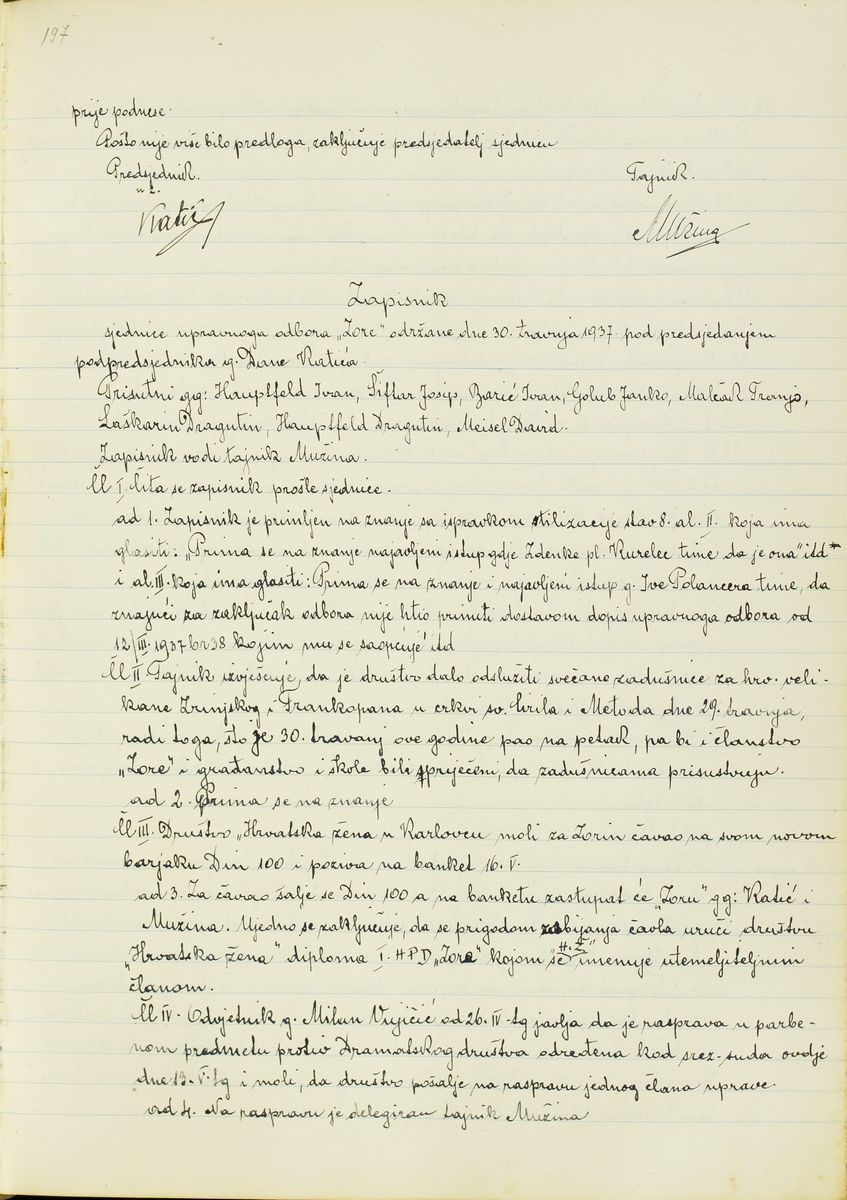 197
prije podnese.
Pošto nije više bilo predloga, zaključuje predsjedatelj sjednicu
Predsjednik. Tajnik.
u z.
Katić Mužina
Zapisnik
sjednice upravnoga odbora „Zore" održane dne 30. travnja 1937. pod predsjedanjem
podpredsjednika g. Dane Katića.
Prisutni gg: Hauptfeld Ivan, Šiftar Josip, Barić Ivan, Golub Janko, Malčak Franjo,
Laškarin Dragutin, Hauptfeld Dragutin, Meisel David.
Zapisnik vodi tajnik Mužina.
Čl I. Čita se zapisnik prošle sjednice.
ad 1. Zapisnik je primljen na znanje sa ispravkom stilizacije stav 8. al. II. koja ima
glasiti: „Prima se na znanje najavljeni istup gdje Zdenke pl. Kurelec time da je ona" itd"
i al. III. koja ima glasiti: Prima se na znanje i najavljeni istup g. Ive Polancera time, da
znajući za zaključak odbora nije htio primiti dostavom dopis upravnoga odbora od
12/III. 1937 br 38 kojim mu se saopćuje" itd
Čl II Tajnik izvješćuje, da je društvo dalo odslužiti svečane zadušnice za hrv. veli-
kane Zrinjskog i Frankopana u crkvi sv. Ćirila i Metoda dne 29. travnja,
radi toga, što je 30. travanj ove godine pao na petak, pa bi i članstvo
„Zore" i građanstvo i škole bili spriječeni, da zadušnicama prisustvuju.
ad 2. Prima se na znanje
Čl III. Društvo „Hrvatska žena u Karlovcu moli za Zorin čavao na svom novom
barjaku Din 100 i poziva na banket 16. V.
ad 3. Za čavao šalje se Din 100 a na banketu zastupat će „Zoru" gg: Katić i
Mužina. Ujedno se zaključuje, da se prigodom zabijanja čavla uruči društvu
„Hrvatska žena" diploma I. HPD „Zore" kojom se „H. Ž" imenuje utemeljiteljnim
članom.
Čl IV. Odvjetnik g. Milan Vujičić od 26. IV. tg javlja da je rasprava u parbe-
nom predmetu protiv Dramatskog društva određena kod srez. suda ovdje
dne 13. V. tg i moli, da društvo pošalje na raspravu jednog člana uprave.
ad 4. Na raspravu je delegiran tajnik Mužina